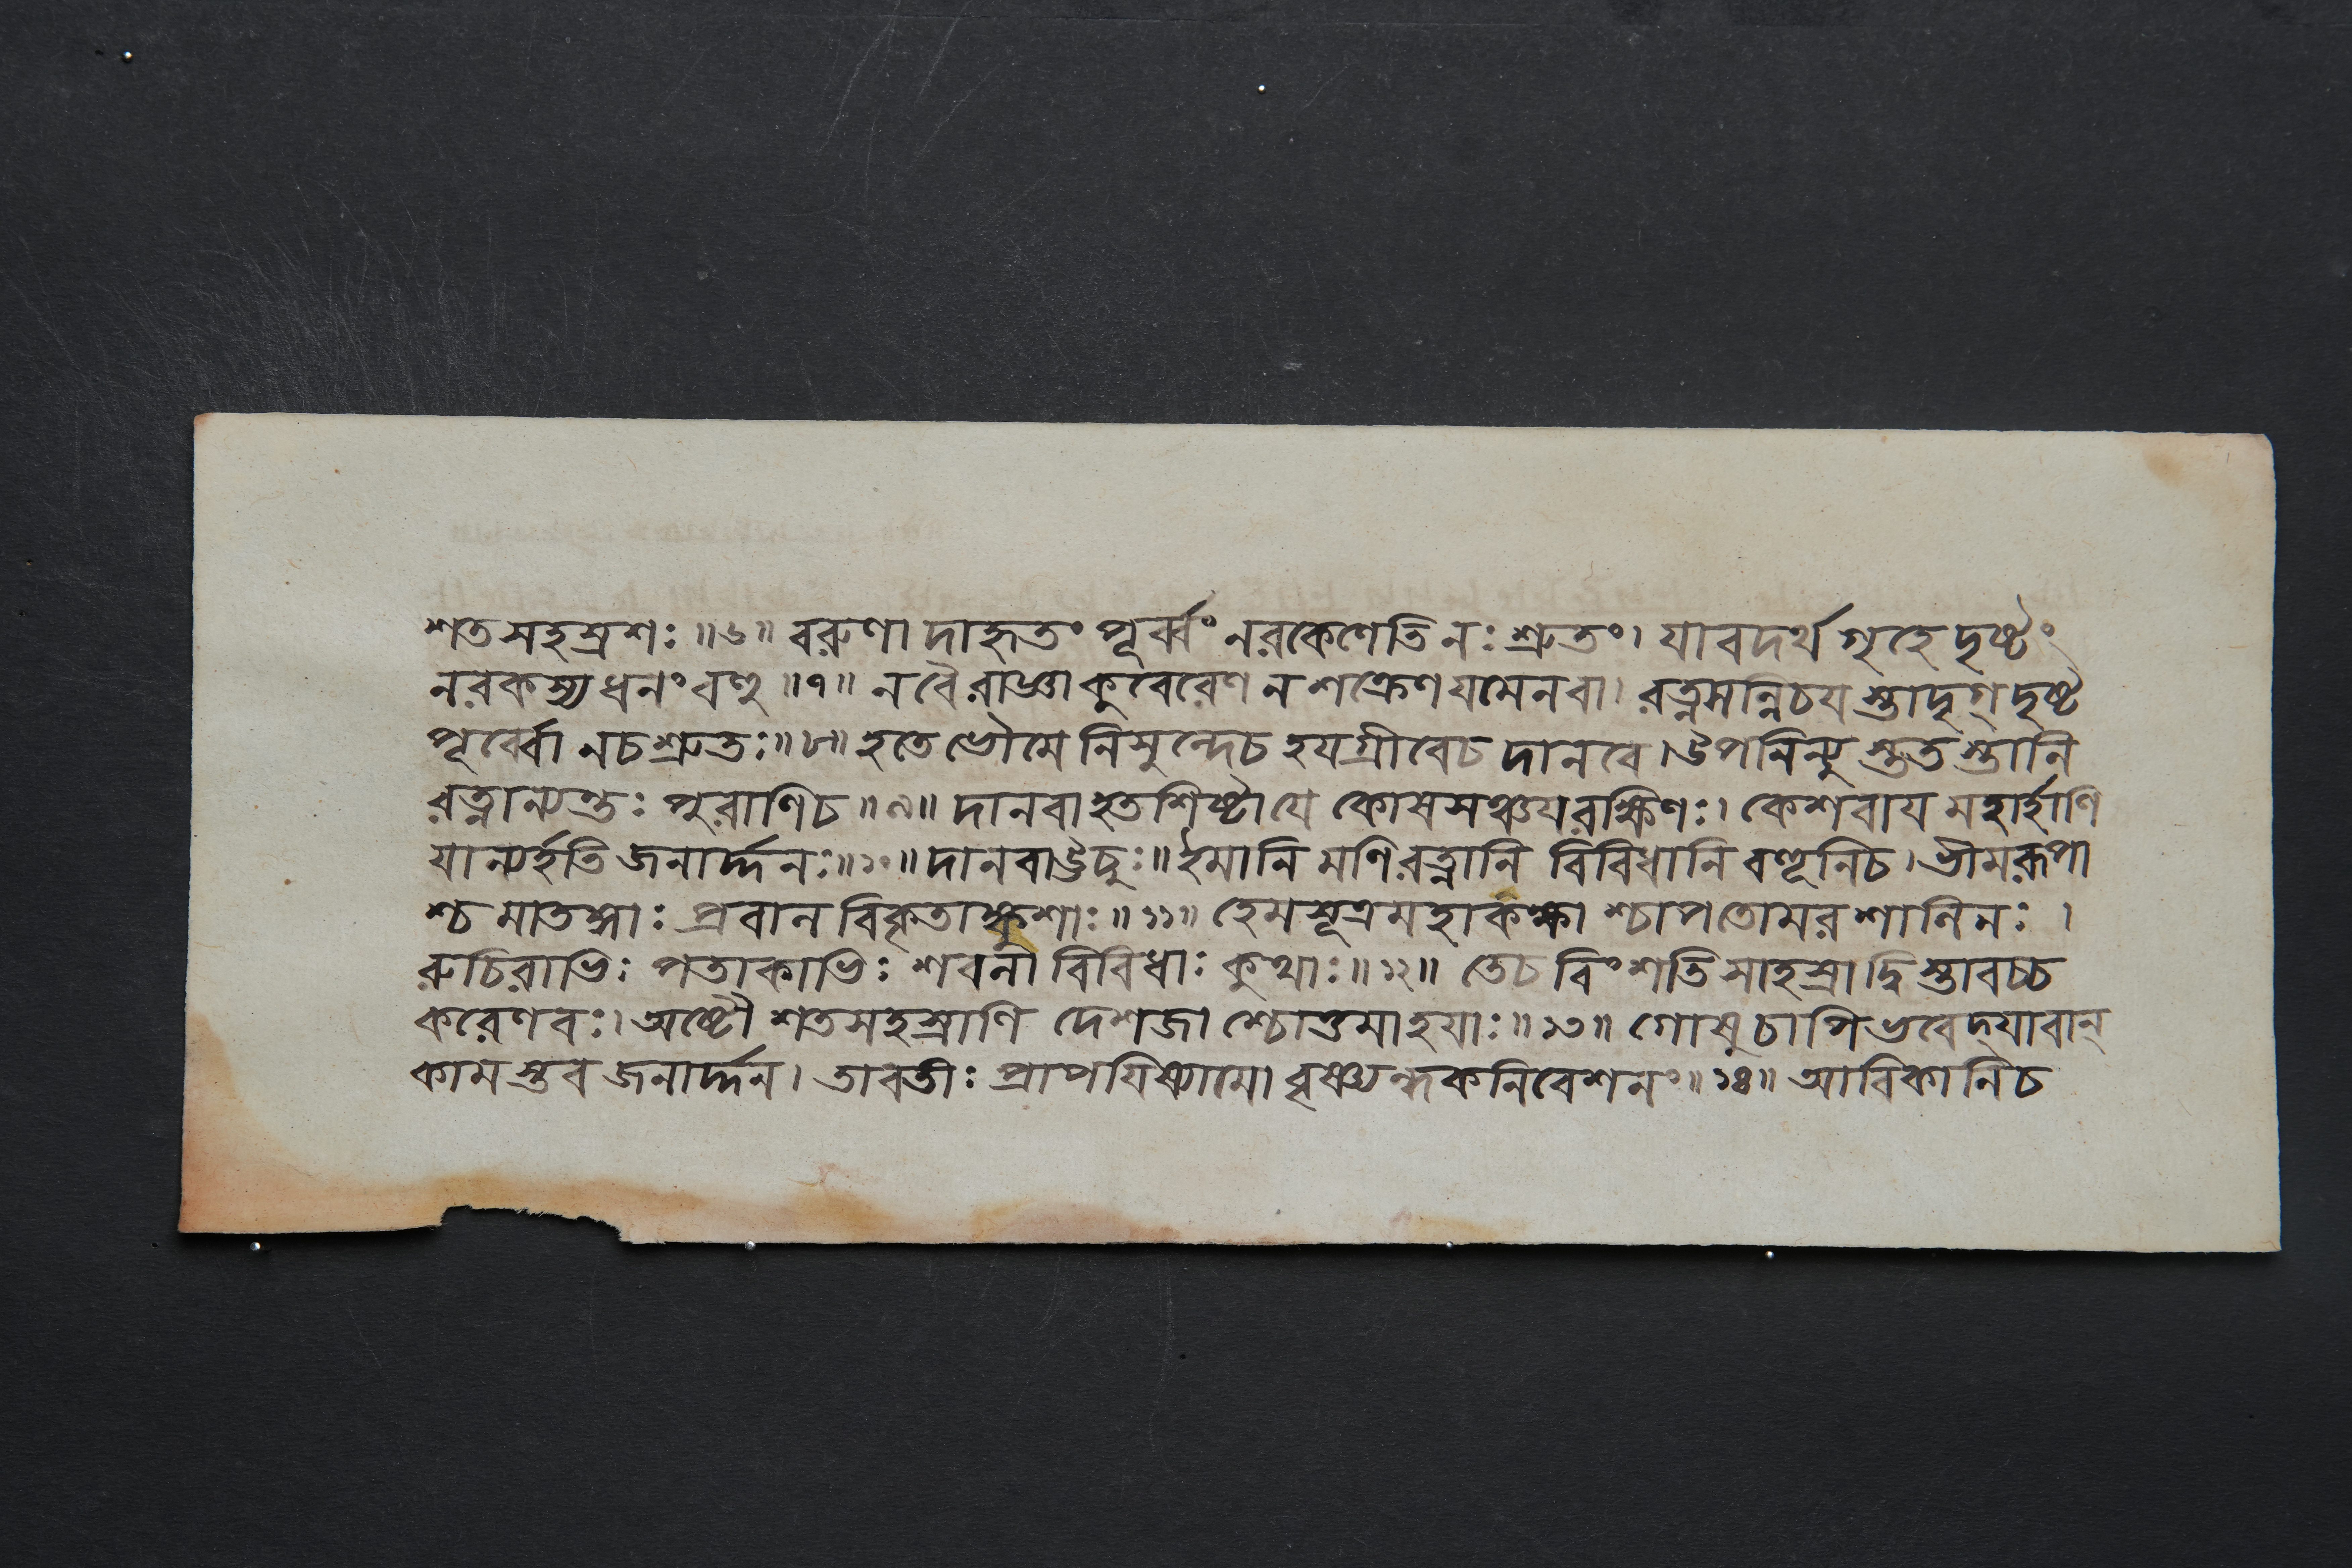 শতসহস্রশঃ॥৬॥ বরুণাদাহৃতং পূর্ব্বং নরকেণেতি নঃ শ্রুতং। যাবদর্থ গৃহে দৃষ্টং
নরকস্য ধনং বহু॥৭॥ ন বৈ রাজ্ঞা কুবেরেণ ন শক্রেণ যমেন বা। রত্নসন্নিচয স্তাদৃগ্ দৃষ্ট
পূর্ব্বো ন চ শ্রুতঃ॥৮॥ হতে ভৌমে নিসুন্দে চ হযগ্রীবে চ দানবে। উপনিন্যু স্তুত স্তানি
রত্নান্যন্তঃ পুরাণি চ॥৯॥ দানবা হতশিষ্টা যে কোষসঞ্চযরক্ষিণঃ। কেশবায মহার্হাণি
যান্যর্হতি জনার্দ্দনঃ॥১০॥ দানবা ঊচুঃ॥ ইমানি মণিরত্নানি বিবিধানি বহূনি চ। ভীমরূপা
শ্চ মাতঙ্গাঃ প্রবানবিকৃতাঙ্কুশাঃ॥১১॥ হেমসূত্রমহাকক্ষা শ্চাপতোমরশানিনঃ।
রুচিরাভিঃ পতাকাভিঃ শবনা বিবিধাঃ কুথাঃ॥১২॥ তে চ বিংশতিসাহস্রা দ্বিস্তাবচ্চ
করেণবঃ। অষ্টৌ শতসহস্রাণি দেশজা শ্চোত্তমা হযাঃ॥১৩॥ গোষু চাপি ভবেদ্যাবান্
কাম স্তব জনার্দ্দন। তাবতীঃ প্রাপযিষ্যামো বৃষ্ণ্যন্ধকনিবেশনং॥১৪॥ আবিকানি চ